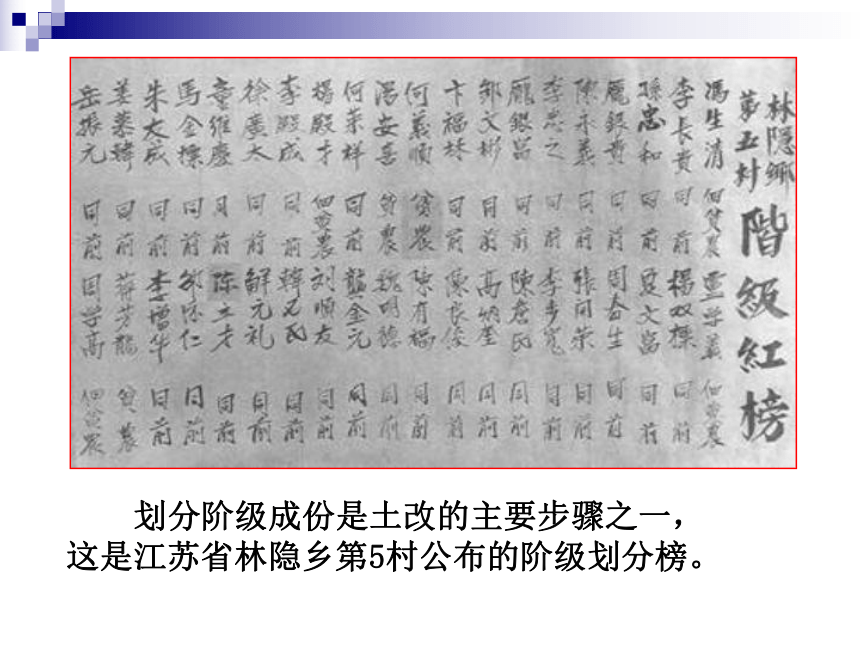 林隱鄉
第五村
階級紅榜
馮生清 佃貧農
李長貴 同前 楊双標 同前
孫忠和 同前 夏文富 同前
龐銀貴 同前 周春生 同前
陳永義 同前 張同荣 同前
李忠之 同前 李步宽 同前
龐銀富 同前 陳詹民 同前
鄒文彬 同前
卞福林 同前 陳良俊 同前
何義順 貧農 陳有福 同前
湯安喜 貧農 魏明德 同前
何荣祥 同前 龔金元 同前
楊殿才 佃貧農 刘順友 同前
李殿成 同前
徐廣大 同前 解元礼 同前
童維慶 同前 陈立才 同前
馬金標 同前 同前
朱大成 同前 李增华 同前
姜慕韓 同前 蒋芳龍 貧農
岳振元 同前 田学高 佃貧農
划分阶级成份是土改的主要步骤之一，
这是江苏省林隐乡第5村公布的阶级划分榜。